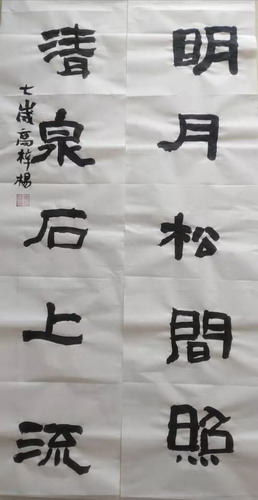 明月松間照
清泉石上流
七歲高梓楊